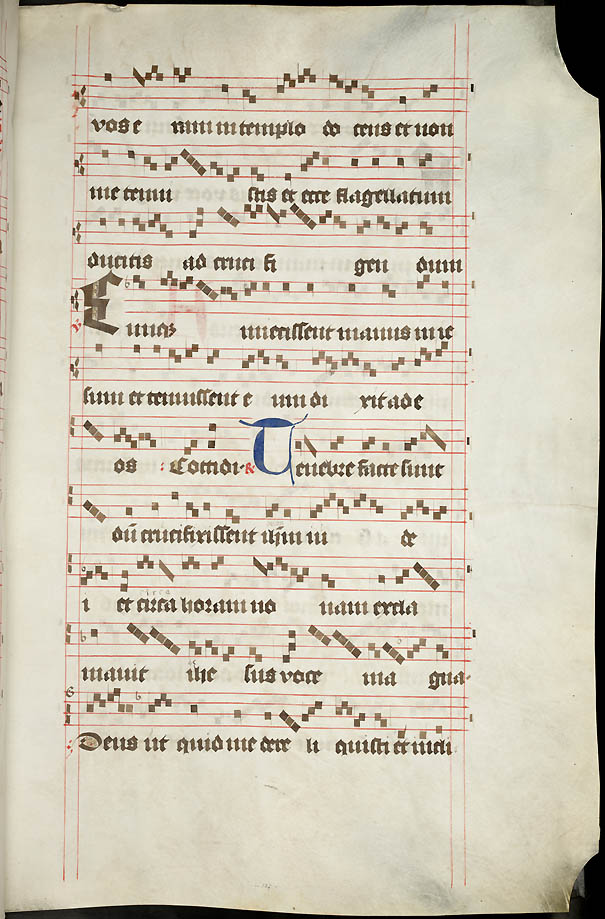 vos e ram in templo do cens et non
me tenui stis et ecce flagellatum
ducitis ad cruci fi gen dum
Cumq iniecissent manus in ie
sum et tenuissent e um di xit ad e
os : Cottidi. R Tenebre facte sunt
dũ crucifixissent ihm iu de
i et circa horam no nam excla
mavit ihe sus voce ma gna.
Deus ut quid me dere li quisti et incli